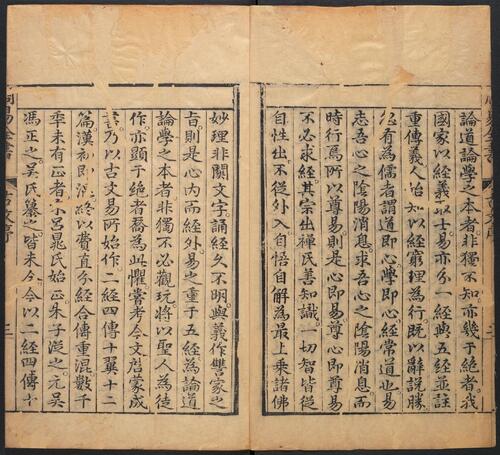 論道論學之本者非獨不知亦幾于絕者我
國家以經義取士易亦分一經與五經並註
重傳義人治知以經窮理為行既以辭說勝
忽有為儒者謂道即心學即心經常道也易
志吾心之陰陽消息求吾心之陰陽消息而
時行焉所以尊易則是心即易尊心即尊易
不必求經其宗出禪氏善知識一切智皆從
自性出不從外入自悟自解為最上乘諸佛
妙理非關文字誦經久不明與義作讐家之
旨則是心內而經外易之重于五經為論道
論學之本者非獨不必觀玩將以聖人為徒
作亦頭于絕者喬為此懼嘗考今文啟蒙成
書乃以古文易所始作二經四傳十翼十二
篇漢初即淆終以費直分經合傳重混數千
季未有正者宋呂晁氏始正朱子從之元吳
馮正之吳氏纂之皆未今令以二經四傳十
周易全書
古文序
三